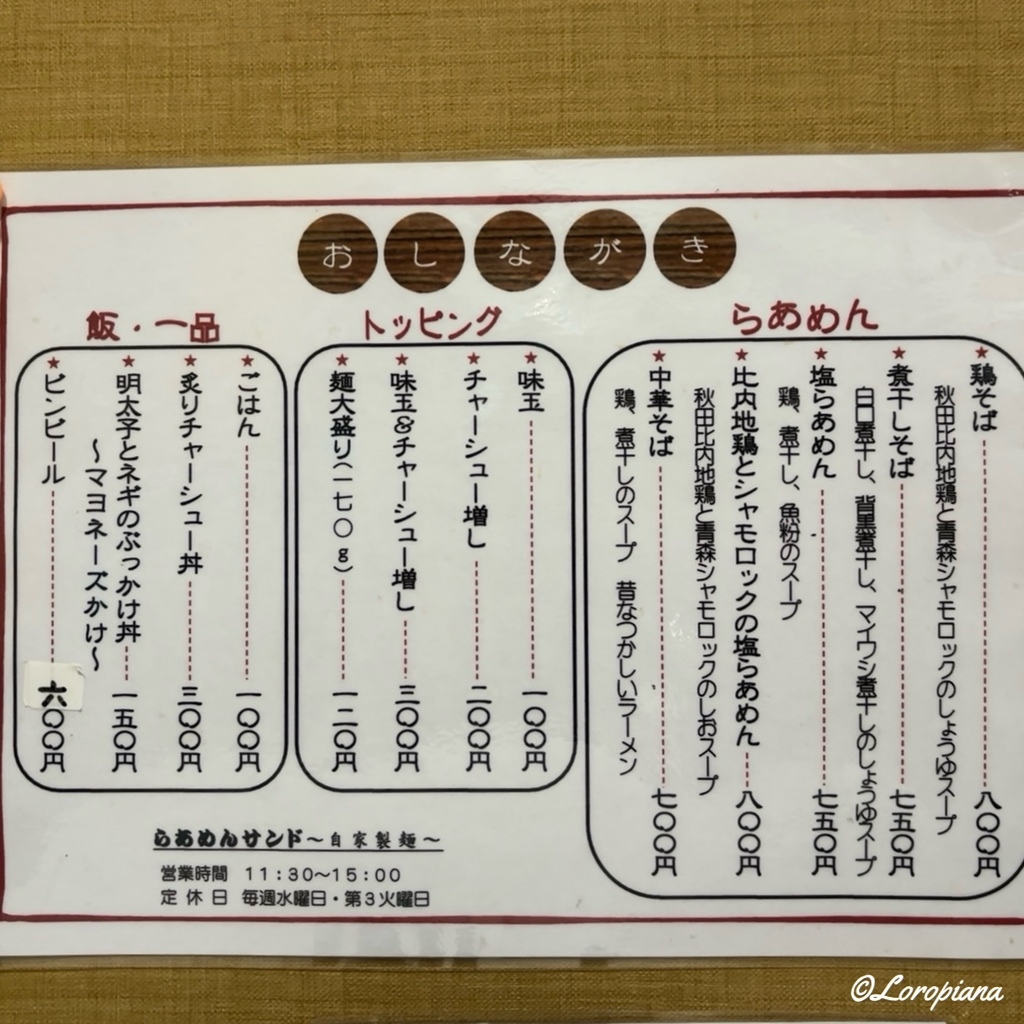 おしながき
らあめん
★鶏そば 八〇〇円
秋田比内地鶏と青森シャモロックのしょうゆスープ
★煮干しそば 七五〇円
白口煮干し、背黒煮干し、マイワシ煮干しのしょうゆスープ
★塩らあめん 七五〇円
鶏、煮干し、魚粉のスープ
★比内地鶏とシャモロックの塩らあめん 八〇〇円
秋田比内地鶏と青森シャモロックのしおスープ
★中華そば 七〇〇円
鶏、煮干しのスープ 昔なつかしいラーメン
トッピング
★味玉 一〇〇円
★チャーシュー増し 二〇〇円
★味玉&チャーシュー増し 三〇〇円
★麺大盛り(一七〇g) 一二〇円
飯・一品
★ごはん 一〇〇円
★炙りチャーシュー丼 三〇〇円
★明太子とネギのぶっかけ丼 一五〇円
～マヨネーズかけ～
★ビンビール 六〇〇円
らあめんサンド～自家製麺～
営業時間 11:30～15:00
定休日 毎週水曜日・第3火曜日
©Loropiana